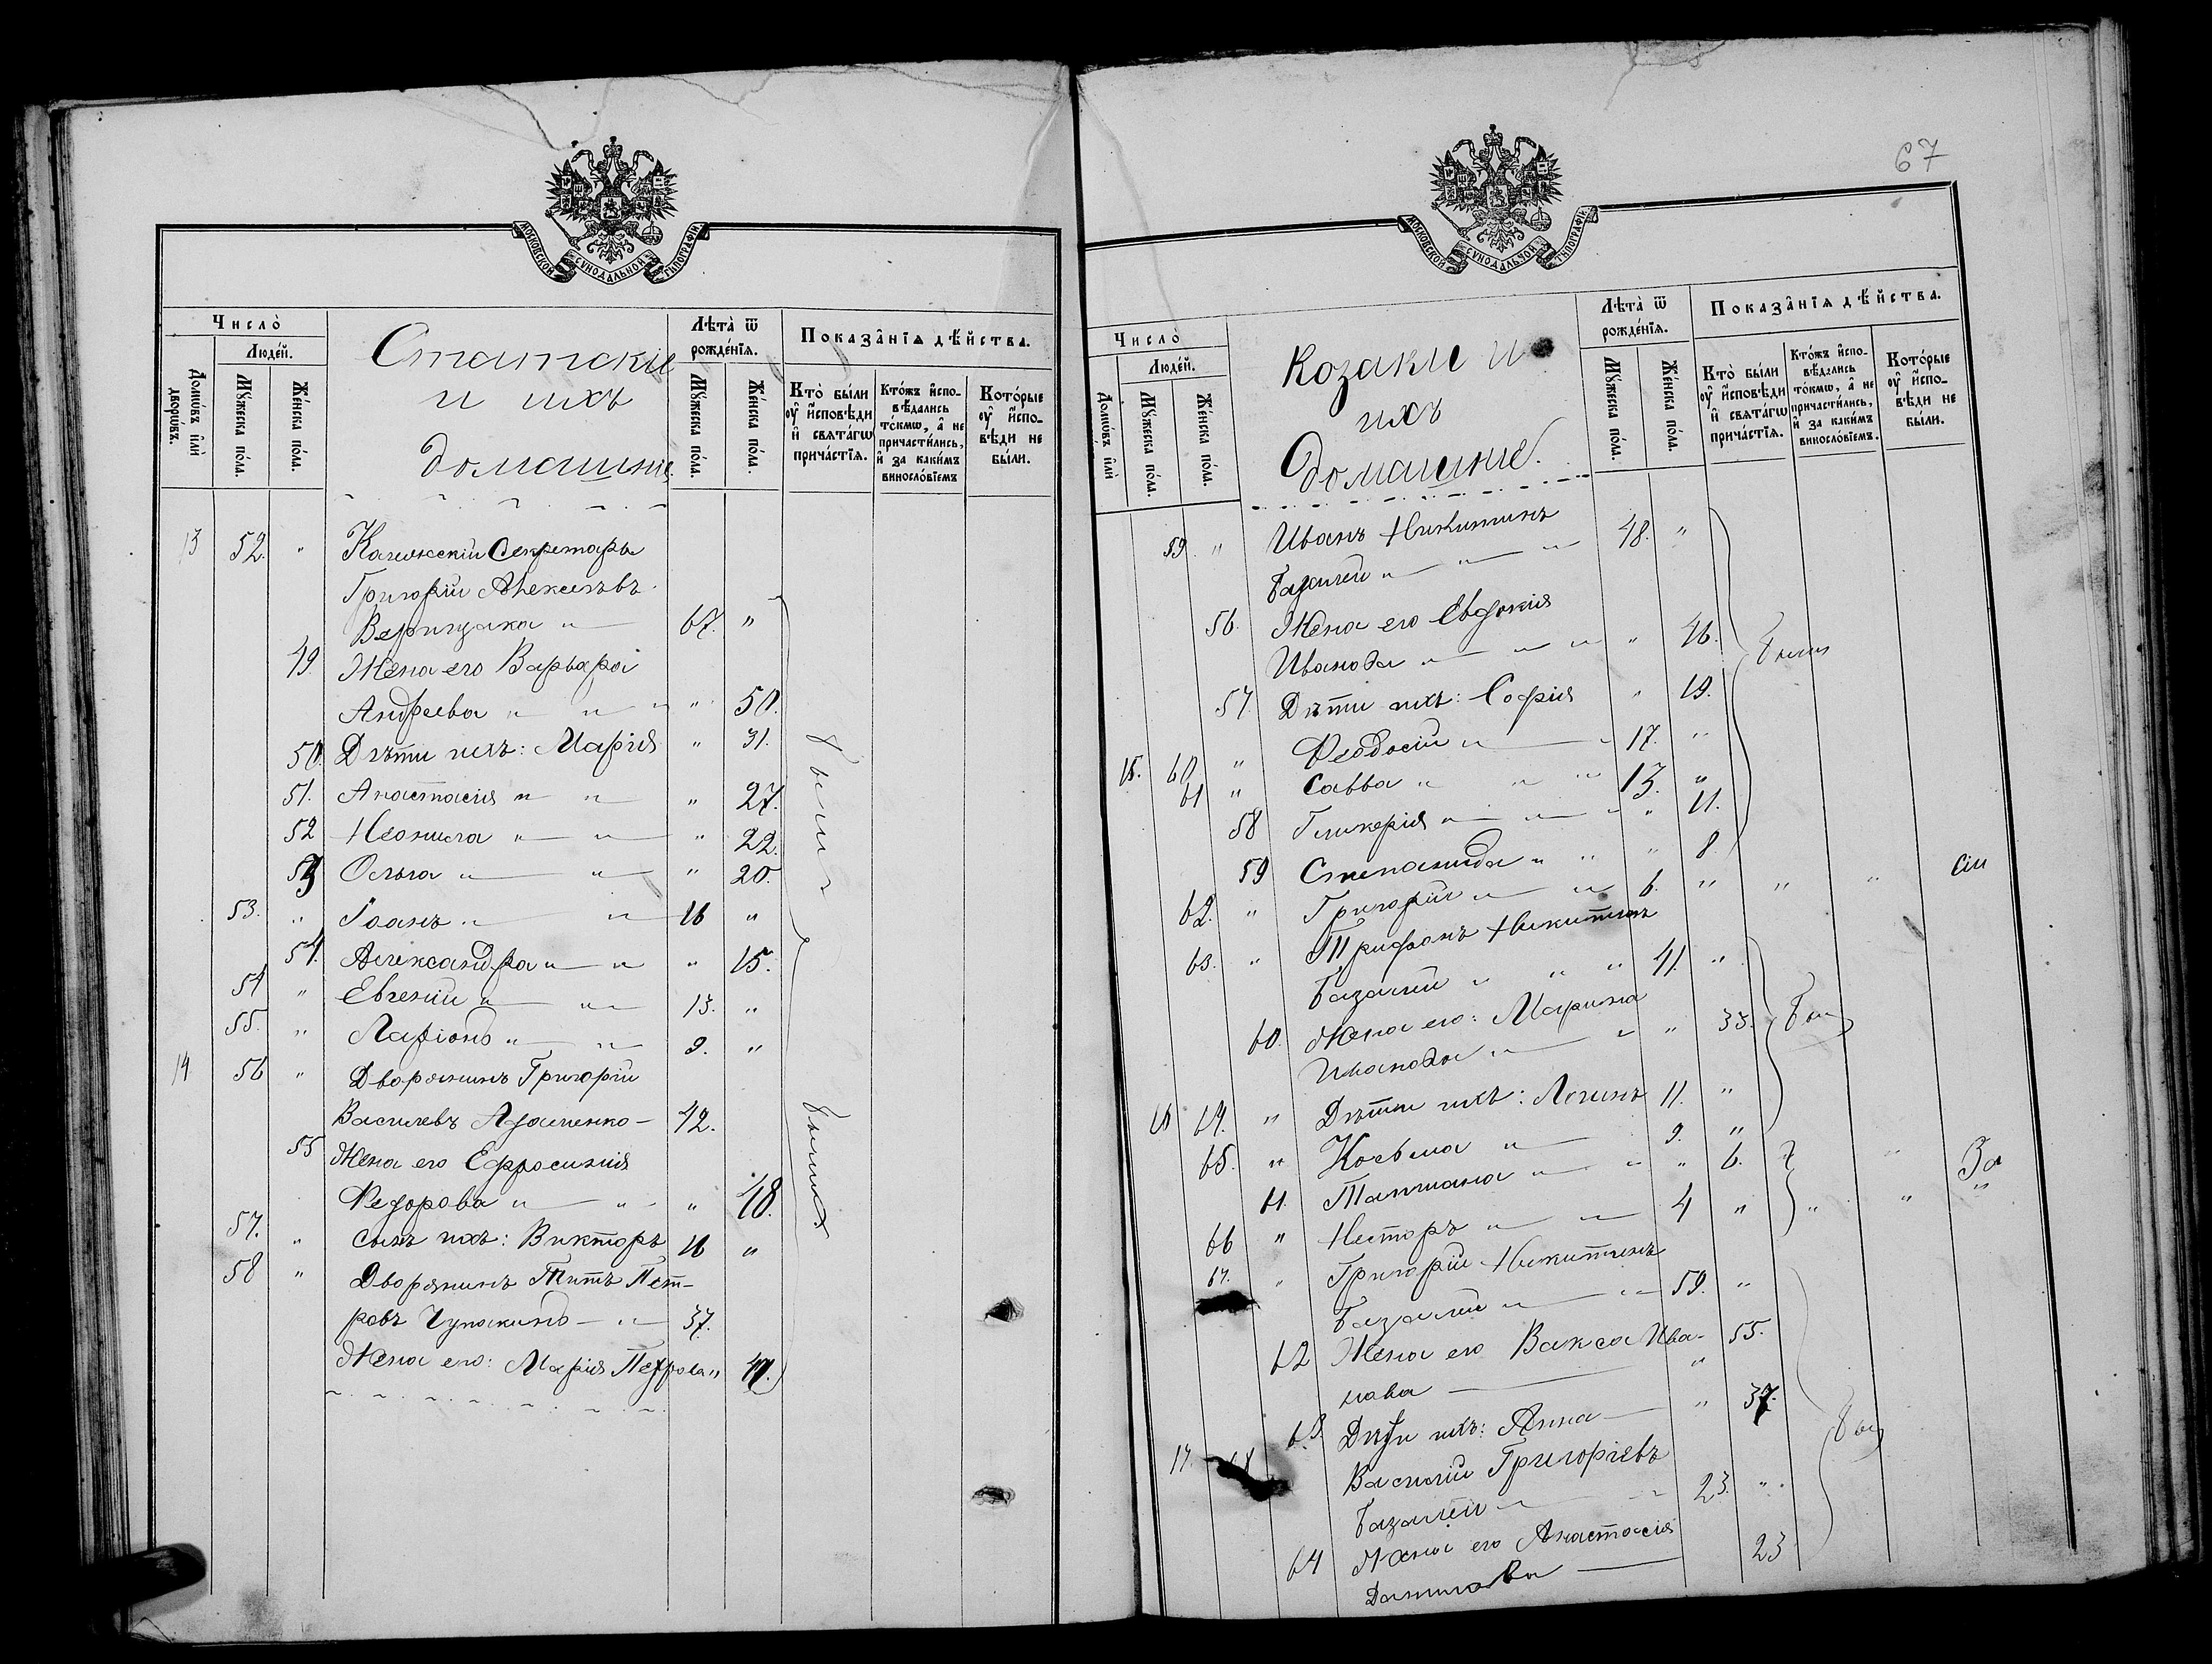 МОСКОВСКОЙ СѴНОДАЛЬНОЙ ТѴПОГРАФІИ
Число̀
Людéй.
Домѡ́въ и҆лѝ дворѡ́въ.
Мꙋ́жеска по́ла.
Жéнска по́ла.
Статскіе
и ихъ
домашніе
Лѣта̀ ѿ рождéнїѧ.
Мꙋ́жеска по́ла.
Жéнска по́ла.
Показа̂нїѧ дѣ́йства.
Ктѡ̀ бы́ли оу҆ и҆споⷡ҇ѣди и҆ свѧта́гѡ прича́стїѧ.
Кто́жъ и҆спо-
вѣ́дались
то́кмѡ, а҆ не
причасти́лись,
и҆ за каки́мъ
винослóвїемъ
Кото́рые
оу҆ и҆спо-
вѣди не
бы́ли.
13 52. " Колежскій Секретарь
Григорій Алексѣевъ
" 67. "
49. Жена его Варвара
Андреева " " " " 50.
50. Дѣти ихъ: Марія " 31.
51. Анастасія " " " 27.
52 Неонила " " " 22.
53 Ольга " " " 20.
53. " Іоанъ " " 16 "
54. Александра " " " 15.
54 " Евгеній " " 13. "
55. " Ларіонъ " " 9. "
14 56 " Дворянинъ Григорій
Василевъ 42.
55 Жена его Ефросинія
Федорова " " " 48.
57. " Сынъ ихъ: Викторъ 16 "
58 " Дворянинъ Титъ Пет-
ровъ " 37.
Жена его: Марія Петрова "
были
были
67
МОСКОВСКОЙ СѴНОДАЛЬНОЙ ТѴПОГРАФІИ
Число̀
Людéй.
Домѡ́въ и҆лѝ
Мꙋ́жеска по́ла.
Жéнска по́ла.
Козаки и
ихъ
Домашніе.
Лѣта̀ ѿ
рождéнїѧ.
Мꙋ́жеска по́ла.
Жéнска по́ла.
Показа̂нїѧ дѣ́йства.
Ктѡ̀ бы́ли
оу҆ и҆споⷡ҇ѣди
и҆ свѧта́гѡ
прича́стїѧ.
Кто́жъ и҆спо-
вѣ́дались
то́кмѡ, а҆ не
причасти́лись,
и҆ за каки́мъ
винослóвїемъ.
Кото́рые
оу҆ и҆спо-
вѣди не
бы́ли.
59. " Иванъ Никитинъ
Базилей " " " 48. "
56. Жена его Евдокія
Иванова " " " " 46.
57 Дѣти ихъ: Софія " 19.
15. 60 " Феодосій " " 17. "
61 " Савва " " " 13. "
58 Гликерія " " " " 11.
59 Степанида " " " 8.
62. " Григорій " " 6. " " "
63. " Трифонъ Никитинъ
Базилей " " " 41. "
60. Жена его: Марина
Иванова " " " 33.
16 64. " Дѣти ихъ: Логинъ 11. "
65. " Косьма " 9. "
61. Татіана " " " 6.
66 " Несторъ " " 4 " " "
67. " Григорій Никитинъ
Базилей " " 59. "
62 Жена его Васса Ива- 55.
нова "
63 Дѣти ихъ: Анна " 37.
17. 68 Василій Григоріевъ
Базилей " " 23. "
64 Жена его Анастасія
Данилова 23
были